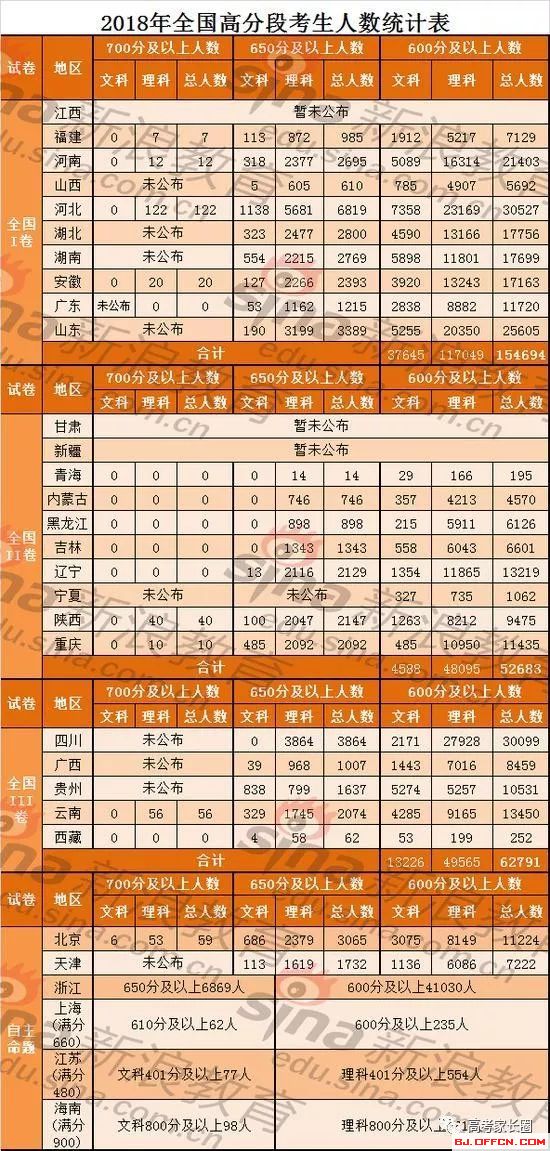 2018年全国高分段考生人数统计表
试卷 地区 700分及以上人数 650分及以上人数 600分及以上人数
文科 理科 总人数 文科 理科 总人数 文科 理科 总人数
全国I卷
江西 暂未公布
福建 0 7 7 113 872 985 1912 5217 7129
河南 0 12 12 318 2377 2695 5089 16314 21403
山西 未公布 5 605 610 785 4907 5692
河北 0 122 122 1138 5681 6819 7358 23169 30527
湖北 未公布 323 2477 2800 4590 13166 17756
湖南 未公布 554 2215 2769 5898 11801 17699
安徽 0 20 20 127 2266 2393 3920 13243 17163
广东 未公布 0 0 53 1162 1215 2838 8882 11720
山东 未公布 190 3199 3389 5255 20350 25605
合计 37645 117049 154694
试卷 地区 700分及以上人数 650分及以上人数 600分及以上人数
文科 理科 总人数 文科 理科 总人数 文科 理科 总人数
全国II卷
甘肃 暂未公布
新疆 暂未公布
青海 0 0 0 0 14 14 29 166 195
内蒙古 0 0 0 0 746 746 357 4213 4570
黑龙江 0 0 0 0 898 898 215 5911 6126
吉林 0 0 0 0 1343 1343 558 6043 6601
辽宁 0 0 0 13 2116 2129 1354 11865 13219
宁夏 未公布 未公布 327 735 1062
陕西 0 40 40 100 2047 2147 1263 8212 9475
重庆 0 10 10 485 2092 2092 485 10950 11435
合计 4588 48095 52683
试卷 地区 700分及以上人数 650分及以上人数 600分及以上人数
文科 理科 总人数 文科 理科 总人数 文科 理科 总人数
全国III卷
四川 未公布 0 3864 3864 2171 27928 30099
广西 未公布 39 968 1007 1443 7016 8459
贵州 未公布 838 799 1637 5274 5257 10531
云南 0 56 56 329 1745 2074 4285 9165 13450
西藏 0 0 0 4 58 62 53 199 252
合计 13226 49565 62791
试卷 地区 700分及以上人数 650分及以上人数 600分及以上人数
文科 理科 总人数 文科 理科 总人数 文科 理科 总人数
自主命题
北京 6 53 59 686 2379 3065 3075 8149 11224
天津 未公布 113 1619 1732 1136 6086 7222
浙江 650分及以上6869人 600分及以上41030人
上海(满分660) 610分及以上62人 600分及以上235人
江苏(满分480) 文科401分及以上77人 理科401分及以上554人
海南(满分900) 文科800分及以上98人 理科800分及以上
高考家长圈
BJ.OFFCN.COM
sina新浪教育
edu.sina.com.cn